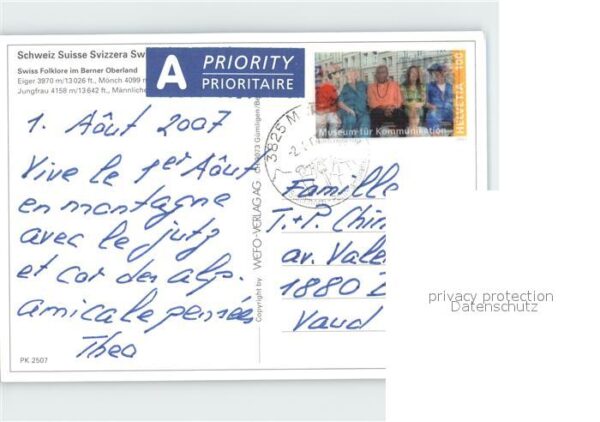 Schweiz Suisse Svizzera
Swiss Folklore im Berner Oberland
Eiger 3970 m/13 026 ft., Mönch 4099 m
Jungfrau 4158 m/13 642 ft., Männliche
A PRIORITY
PRIORITAIRE
Museum für Kommunikation
HELVETIA 100
3825 M
1. Aôut 2007
Vive le 1er Aôut
en montagne
avec le jutz
et cor des alps.
amicale pensées
Theo
PK 2507
Copyright by WEFO-VERLAG AG CH-3073 Gümligen/Be
Famille
T.+P. Chin
av. Vale
1880
Vaud
privacy protection
Datenschutz